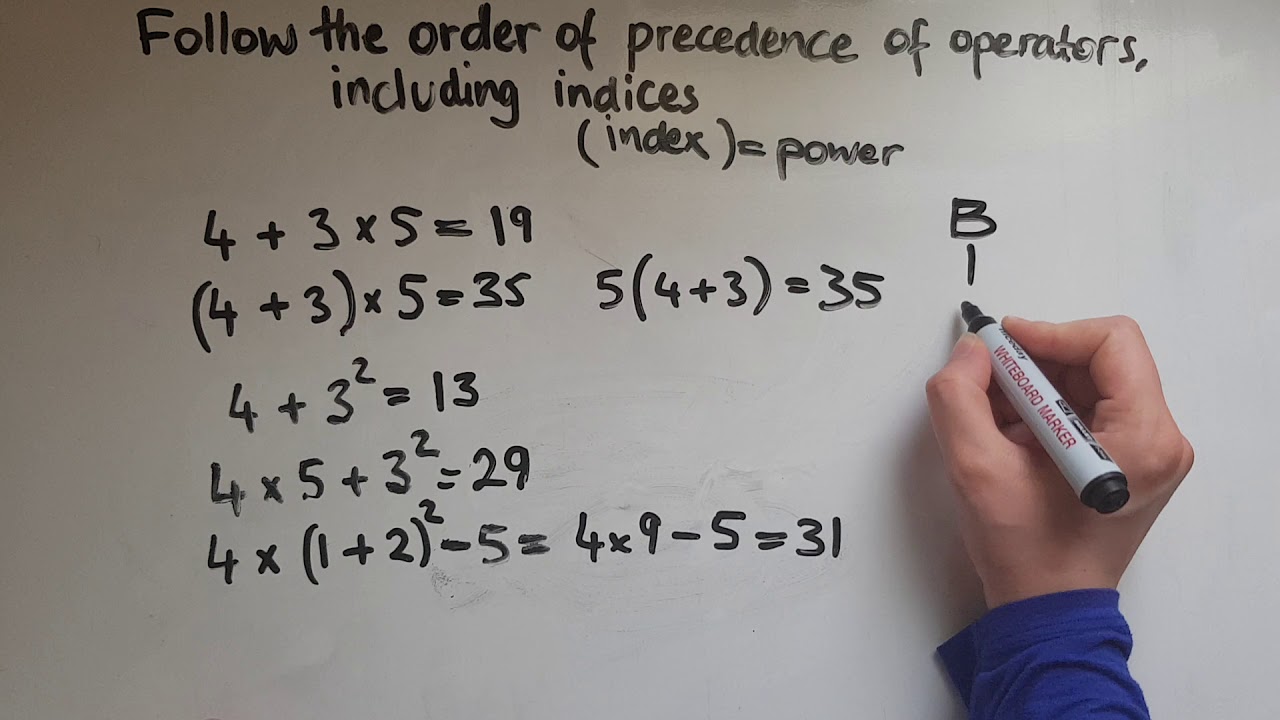 Follow the order of precedence of operators,
including indices
(index) = power
4 + 3 × 5 = 19
(4 + 3) × 5 = 35
5(4+3) = 35
4 + 3² = 13
4 × 5 + 3² = 29
4 × (1 + 2)² - 5 = 4 × 9 - 5 = 31
B
I
WHITEBOARD MARKER